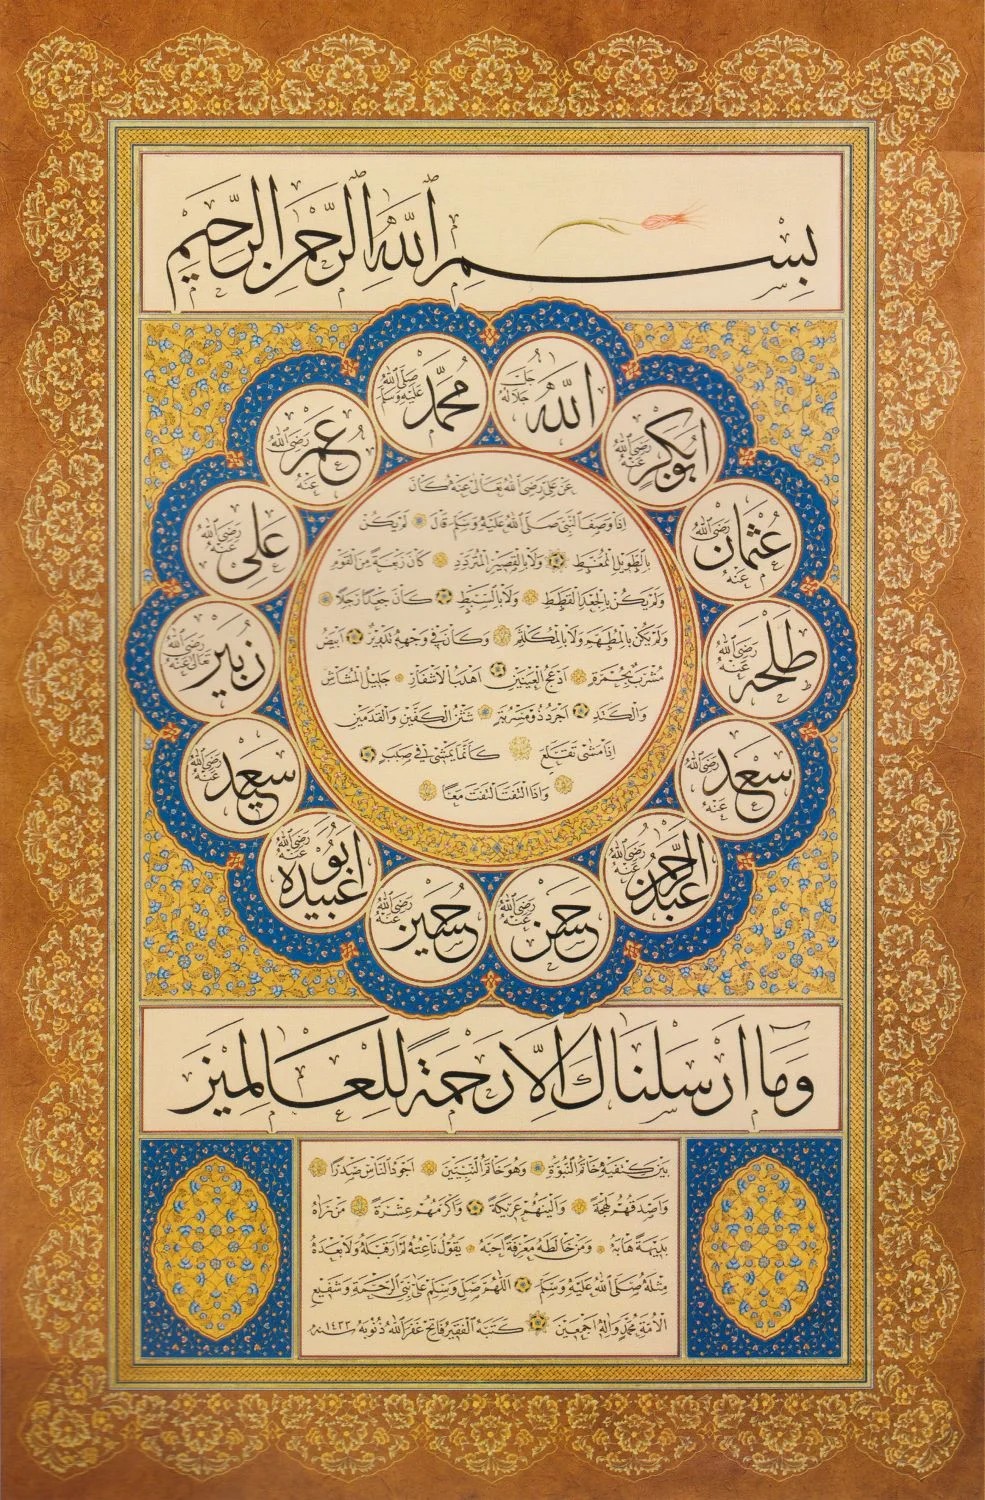 بِسْمِ اللّٰهِ الرَّحْمٰنِ الرَّحِيمِ
اللّٰه جل جلاله
محمد صلى الله عليه وسلم
ابوبكر رضى الله عنه
عمر رضى الله عنه
عثمان رضى الله عنه
على رضى الله عنه
طلحه رضى الله عنه
زبير رضى الله تعالى عنه
سعد رضى الله عنه
سعيد رضى الله عنه
عبدالرحمن رضى الله عنه
ابو عبيده رضى الله عنه
حسن رضى الله عنه
حسين رضى الله عنه
عن على رضى الله تعالى عنه كان
اذا وصف النبى صلى الله عليه وسلم قال لم يكن
بالطويل الممغط ولا بالقصير المتردد كان ربعة من القوم
ولم يكن بالجعد القطط ولا بالسبط كان جعدا رجلا
ولم يكن بالمطهم ولا بالمكلثم وكان فى وجهه تدوير ابيض
مشرب بحمرة ادعج العينين اهدب الاشفار جليل المشاش
والكتد اجرد ذو مسربة شثن الكفين والقدمين
اذا مشى تقلع كأنما يمشى فى صبب
واذا التفت التفت معا
وما ارسلناك الا رحمة للعالمين
بين كتفيه خاتم النبوة وهو خاتم النبيين اجود الناس صدرا
واصدقهم لهجة والينهم عريكة واكرمهم عشرة من رآه
بديهة هابه ومن خالطه معرفة احبه يقول ناعته لم ار قبله ولا بعده
مثله صلى الله عليه وسلم اللهم صل وسلم على نبى الرحمة وشفيع
الامة محمد وآله اجمعين كتبه الفقير فاتح غفر الله ذنوبه سنه ١٤٢٢